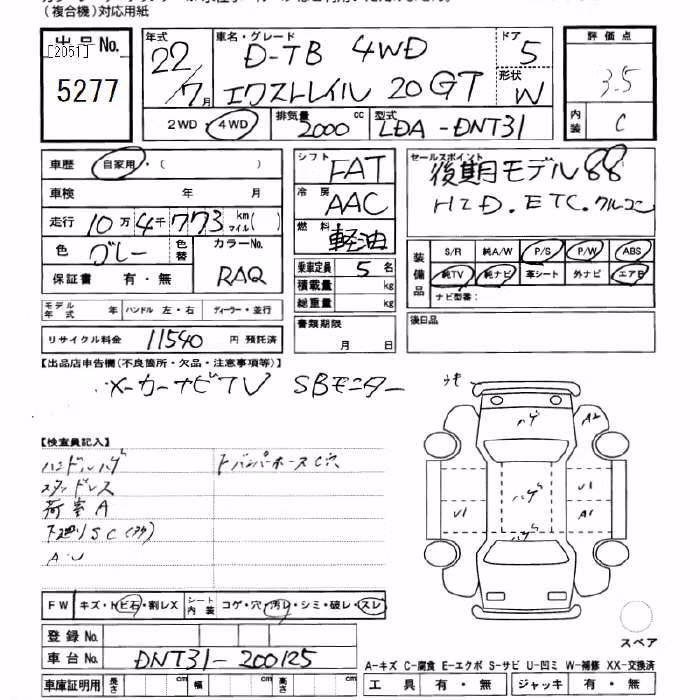 (複合機)対応用紙
出品No. 年式 車名・グレード ドア 評価点
[2051] 22/7月 D-TB 4WD 5 3.5
5277 エクストレイル 20GT 形状 W
2WD・4WD 排気量 2000cc 型式 LDA-DNT31 内装 C
車歴 自家用・( ) シフト FAT セールスポイント 後期モデル 88
車検 年 月 冷房 AAC HID.ETC.クルコン
走行 10万4千773 km マイル( ) 燃料 軽油
色 グレー 色替 カラーNo. RAQ 装備品 S/R 純A/W P/S P/W ABS
保証書 有・無 乗車定員 5名 純TV 純ナビ 革シート 外ナビ エアB
積載量 kg ナビ型番:
モデル年式 年 ハンドル 左・右 ディーラー・並行 総重量 kg
リサイクル料金 11540 円 預託済 書類期限 月 日 後日品
【出品店申告欄(不良箇所・欠品・注意事項等)】
メーカーナビTV SBモニター
ウキ
ハゲ A2
【検査員記入】
ハンドルハゲ FバンパーホースC穴
スタッドレス
荷室A
下廻りSC
A・U
ハゲ U1
U1 A1
ハゲ
FW キズ・ヒビ石・割レX シート内装 コゲ・穴・汚レ・シミ・破レ・スレ
登録No.
スペア
車台No. DNT31-200125
A-キズ C-腐食 E-エクボ S-サビ U-凹ミ W-補修 XX-交換済
車庫証明用 長さ cm 幅 cm 高さ cm 工具 有・無 ジャッキ 有・無